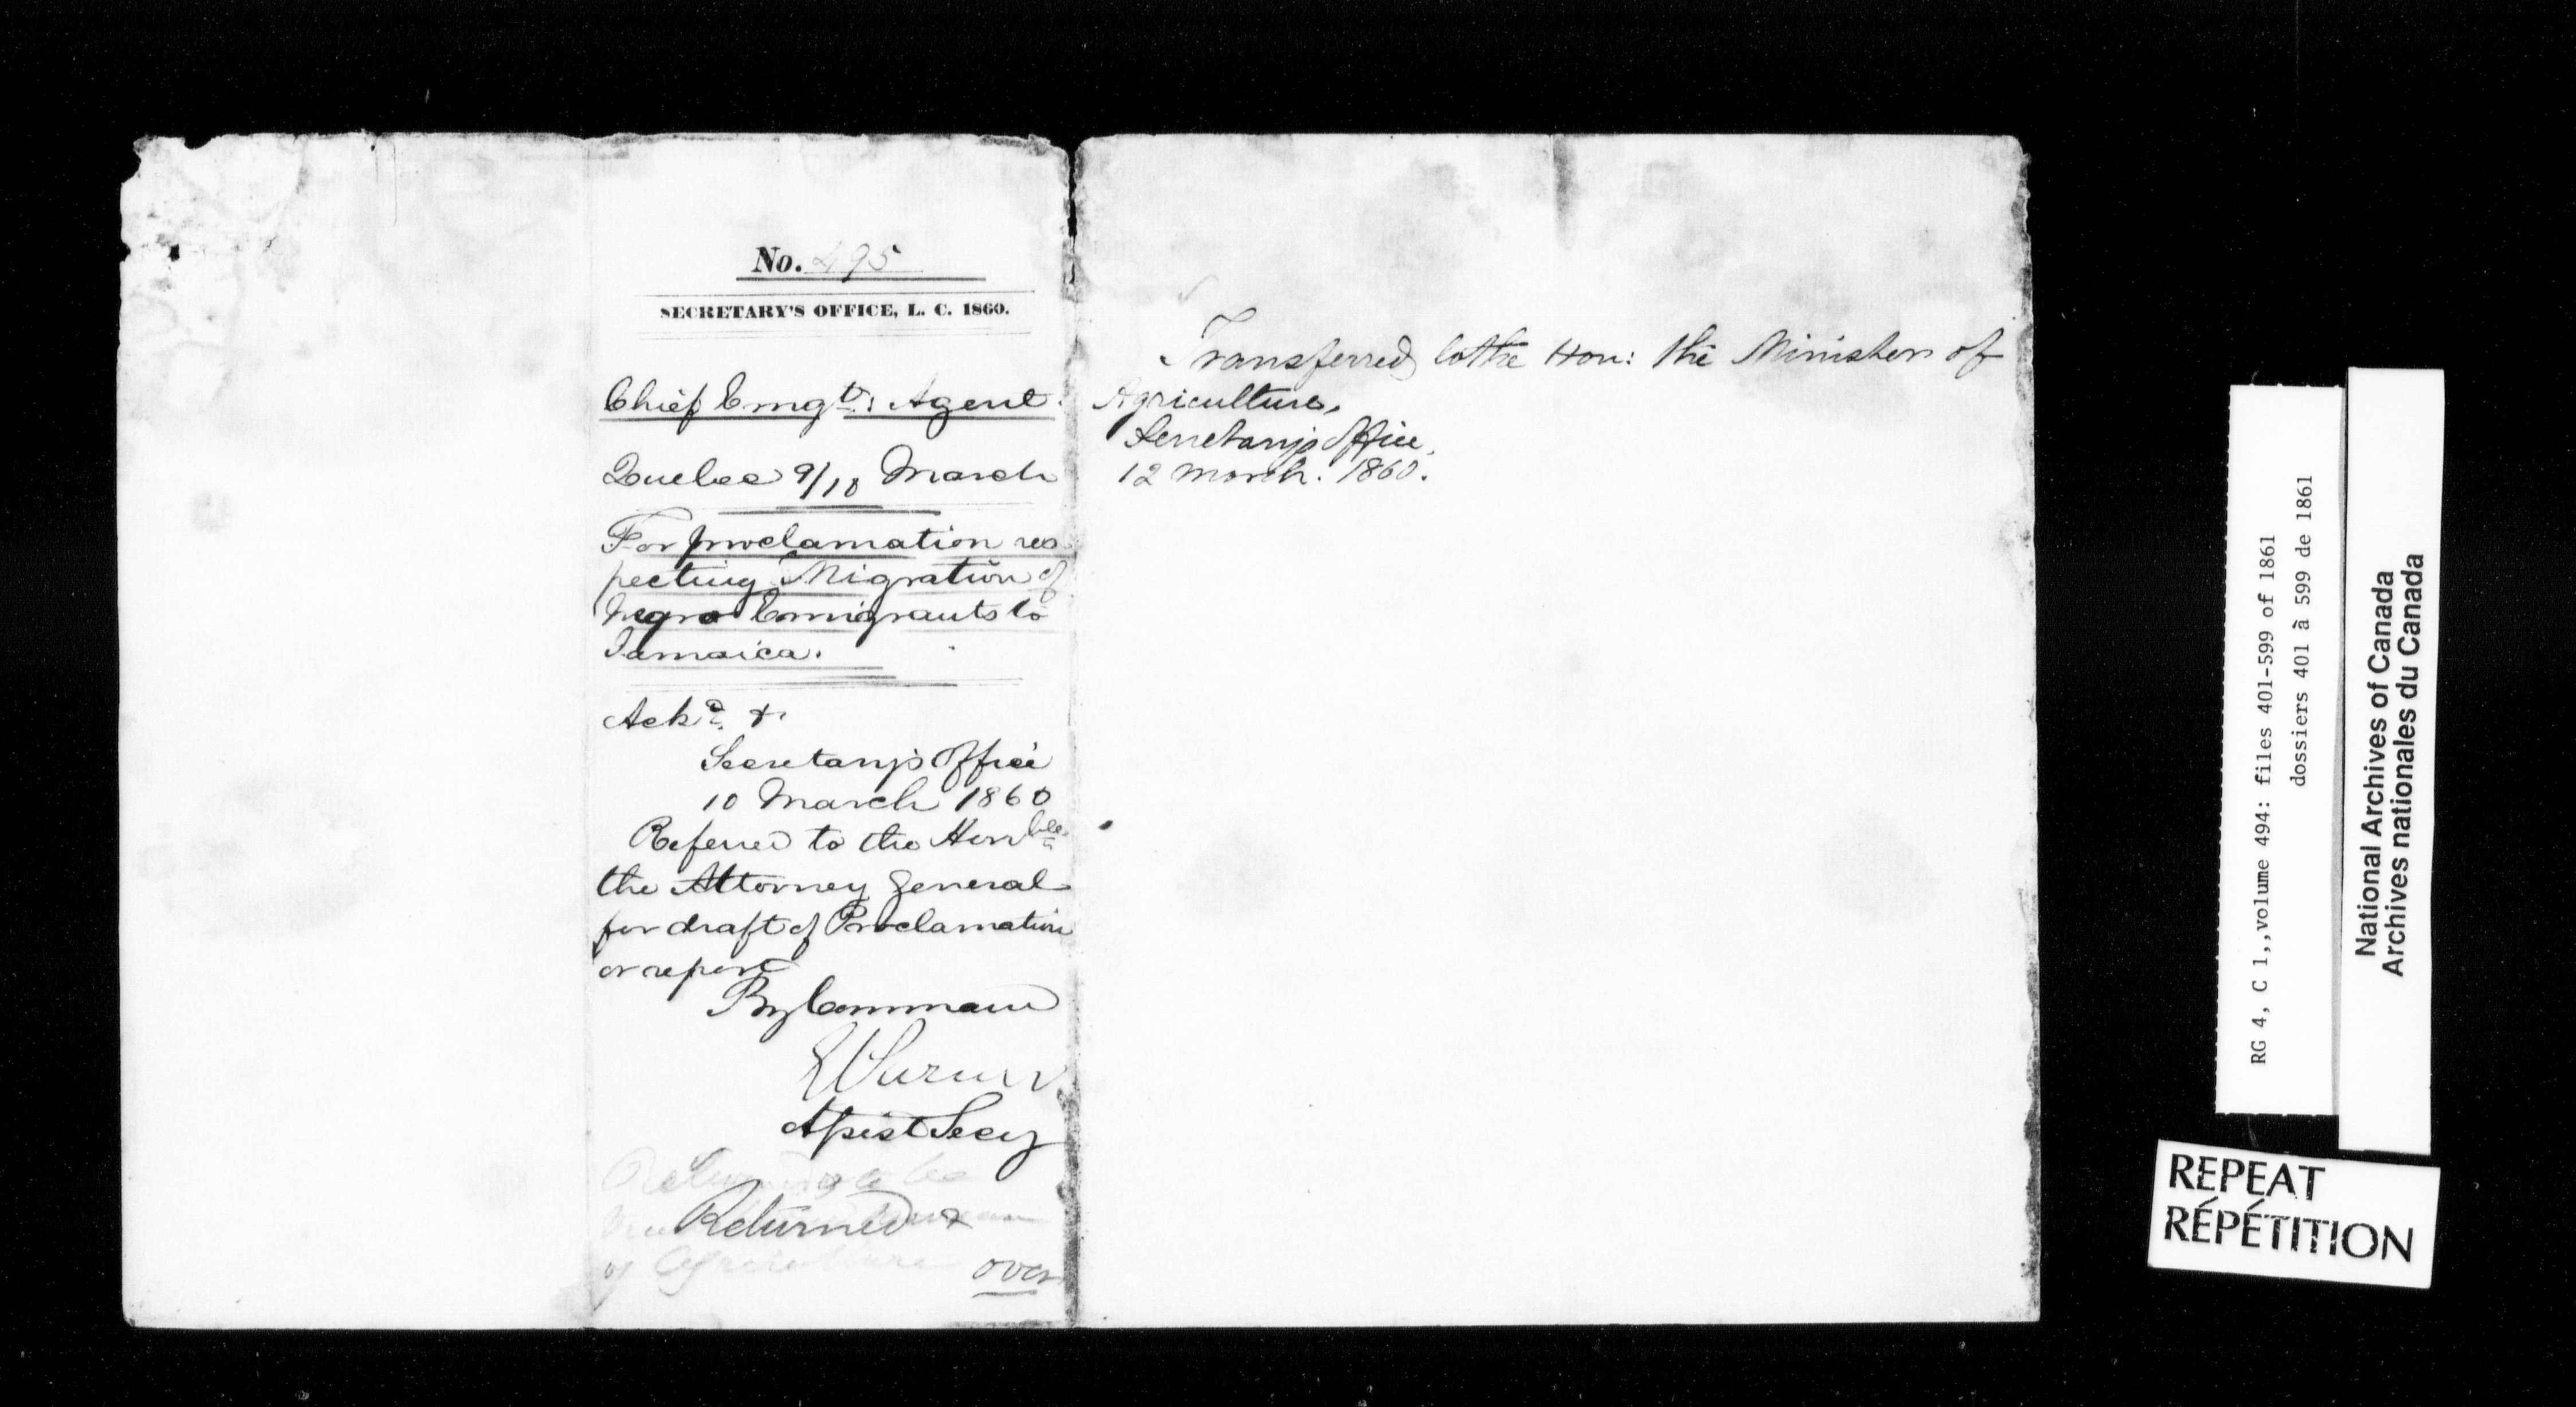 No. 495
SECRETARY'S OFFICE, L. C. 1860.
Chief Emgt: Agent.
Quebec 9/10 March
For proclamation res
pecting Migration of
Negro Emigrants to
Jamaica.
Ackd. &
Secretary's Office
10 March 1860
Referred to the Honble
the Attorney General
for draft of Proclamation
or report
By Command
Assist Secy
Returned &
of Agriculture
over
Transferred to the Hon: the Minister of
Agriculture,
Secretary's Office,
12 March. 1860.
RG 4, C 1,,volume 494: files 401-599 of 1861
dossiers 401 à 599 de 1861
National Archives of Canada
Archives nationales du Canada
REPEAT
RÉPÉTITION